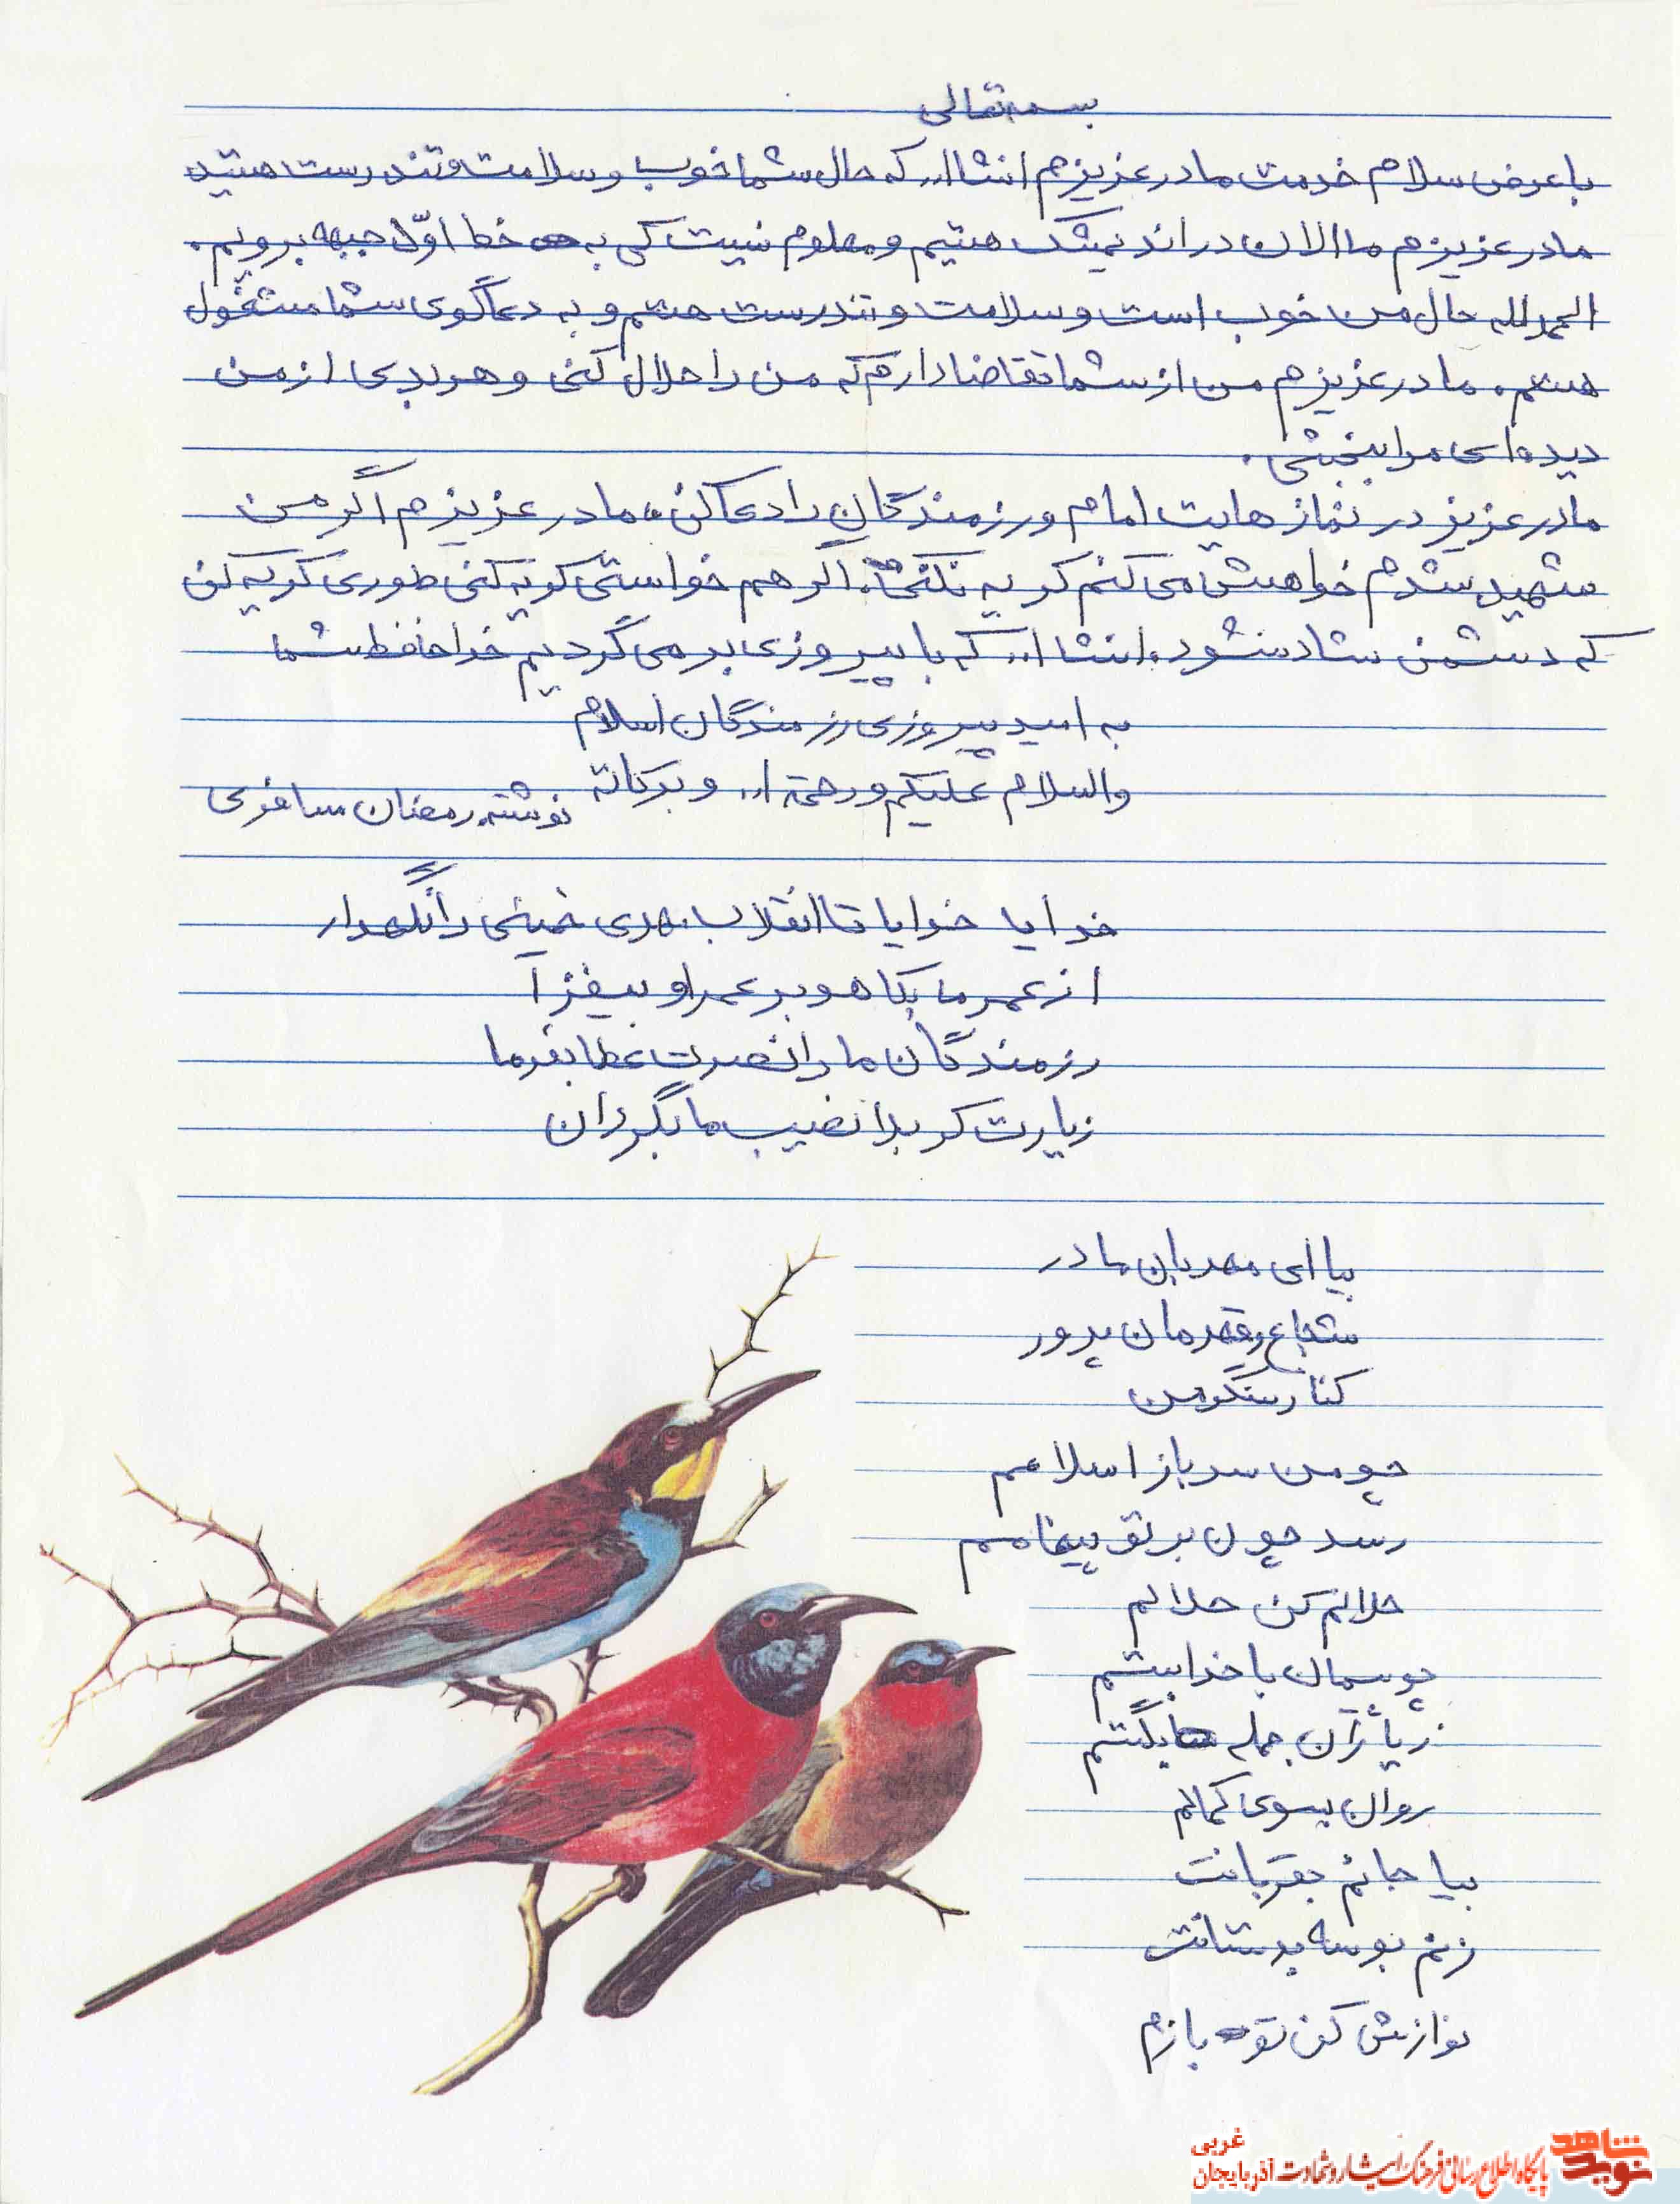 بسمه تعالی
با عرض سلام خدمت مادر عزیزم انشاا... که حال شما خوب و سلامت و تندرست هستید
مادر عزیزم ما الان در اندیمشک هستیم و معلوم نیست کی به خط اوّل جبهه برویم.
الحمدلله حال من خوب است و سلامت و تندرست هستم و به دعاگوی شما مشغول
هستم. مادر عزیزم من از شما تقاضا دارم که من را حلال کنی و هر بدی از من
دیده‌ای مرا ببخشی.
مادر عزیز در نمازهایت امام و رزمندگان را دعا کن. مادر عزیزم اگر من
شهید شدم خواهش می کنم گریه نکنی. اگر هم خواستی گریه کنی طوری گریه کن
که دشمن شاد نشود. انشاا... که با پیروزی بر می گردیم خداحافظ شما
به امید پیروزی رزمندگان اسلام
والسلام علیکم و رحمة ا... و برکاته
نوشته رمضان ساغری
خدایا خدایا تا انقلاب مهدی خمینی را نگهدار
از عمر ما بکاه و بر عمر او بیفزا
رزمندگان ما را نصرت عطا بفرما
زیارت کربلا نصیب ما بگردان
بیا ای مهربان مادر
شجاع و قهرمان پرور
کنار سنگر من
چو من سرباز اسلامم
رسد چون بر تو پیغامم
حلالم کن حلالم
چو پیمان با خدا بستم
ز یاران جمله بگسستم
روان بسوی کمالم
بیا جانم بقربانت
زنم بوسه بدستانت
نوازش کن تو بازم
نوید شاهد
پایگاه اطلاع رسانی فرهنگ ایثار و شهادت آذربایجان غربی